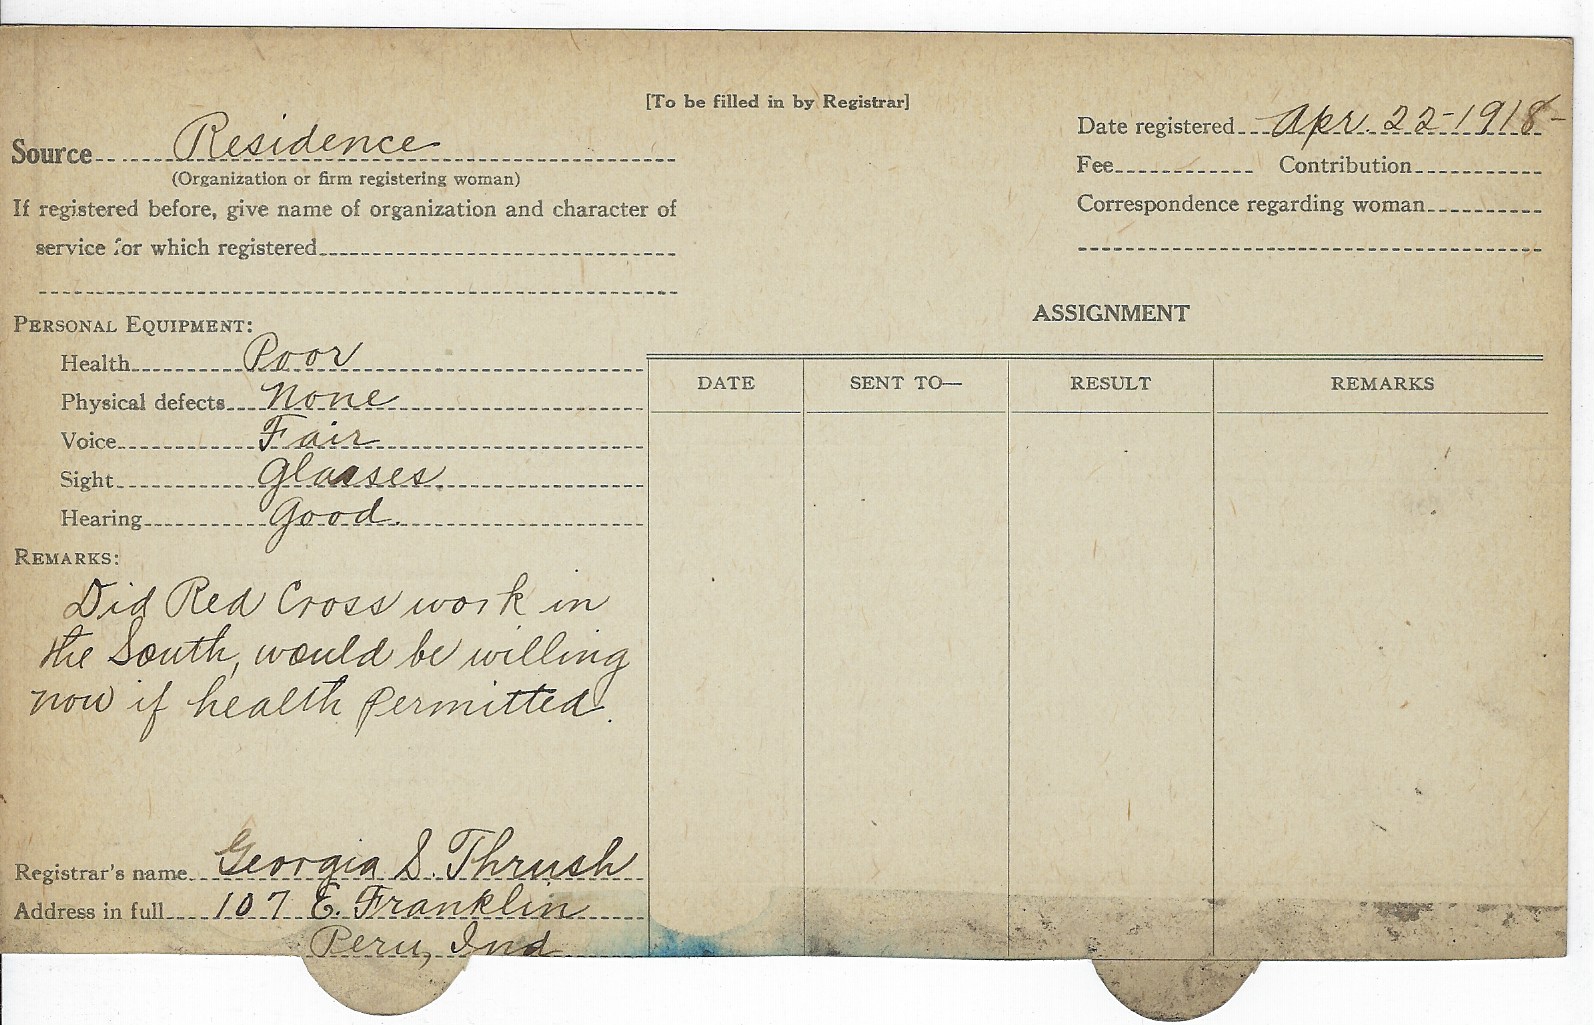 [To be filled in by Registrar]
Source Residence
(Organization or firm registering woman)
If registered before, give name of organization and character of
service for which registered
Date registered Apr. 22-1918-
Fee Contribution
Correspondence regarding woman
PERSONAL EQUIPMENT:
Health Poor
Physical defects None
Voice Fair
Sight Glasses
Hearing Good.
REMARKS:
Did Red Cross work in
the South, would be willing
now if health permitted.
Registrar's name Georgia S. Thrush
Address in full 107 E. Franklin
Peru, Ind
ASSIGNMENT
DATE SENT TO— RESULT REMARKS